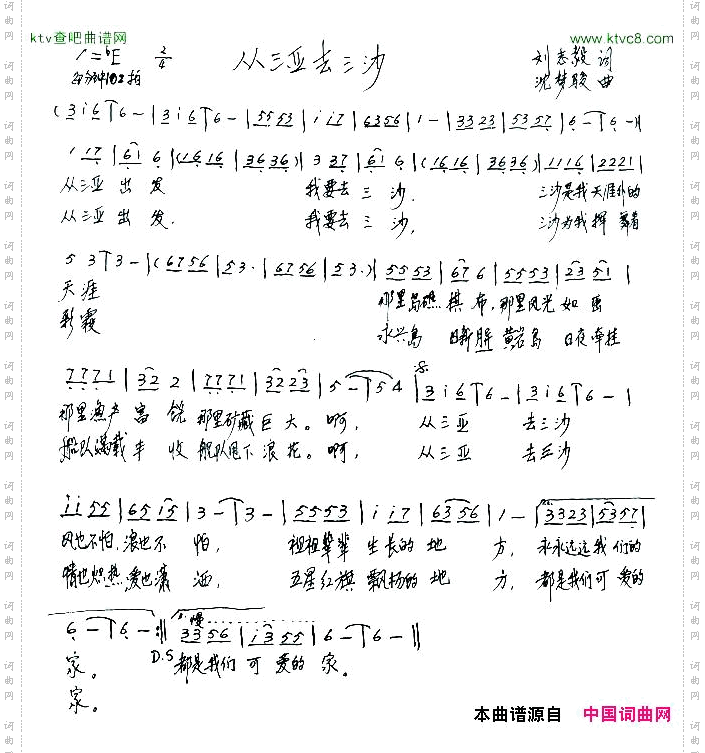 ktv查吧曲谱网
www.ktvc8.com
1=♭E 2/4 从三亚去三沙 刘志毅 词
每分钟102拍 沈梦骏 曲
(3 i 6 | 6 - | 3 i 6 | 6 - | 5553 | i i7 | 6356 | 1 - | 3323 | 5357 | 6 - | 6 - )|
1 17 | 61 6 | (1616 | 3636) | 3 37 | 61 6 | (1616 | 3636) | 1116 | 2221 |
从三亚出发 我要去三沙. 三沙是我天涯外的
从三亚出发. 我要去三沙, 三沙为我挥舞着
5 3 | 3 - | (6756 | 53· | 6756 | 53·) | 5553 | 67 6 | 5553 | 23 51 |
天涯 那里岛礁棋布,那里风光如画
彩霞 永兴岛 黄岩岛 日夜牵挂
7771 | 32 2 | 7771 | 32 23 | 5 - | 5 4 | 3 i 6 | 6 - | 3 i 6 | 6 - |
那里渔产富饶那里矿藏巨大。啊, 从三亚 去三沙
船队满载丰收舰队甩下浪花。啊, 从三亚 去三沙
i i 55 | 65 i5 | 3 - | 3 - | 5553 | i i7 | 63 56 | 1 - | 3323 | 5357 |
风也不怕,浪也不怕, 祖祖辈辈生长的地方, 永永远远我们的
情也炽热,爱也潇洒, 五星红旗飘扬的地方, 都是我们可爱的
6 - | 6 - :‖ 2.慢 3356 | i3 55 | 6 - | 6 - ‖
家。 D.S 都是我们可爱的家。
家。
本曲谱源自 中国词曲网